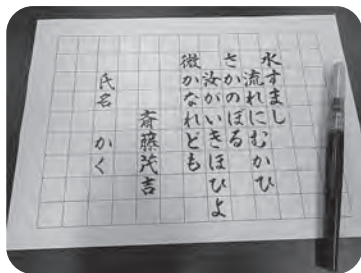 水すまし
流れにむかひ
さかのぼる
汝がいきほひよ
微かなれども
斎藤茂吉
氏名 かく